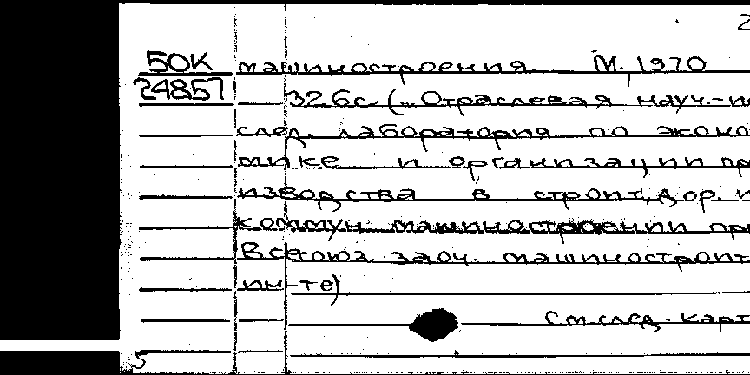 2
50К машиностроения М., 1970
24857 326с. (Отраслевая науч.-и
след. лаборатория по эконо
мике и организации пр
изводства в строит., дор. и
коммун. машиностроении при
Всесоюз. заоч. машиностроит
ин-те)
См. след. карт
5